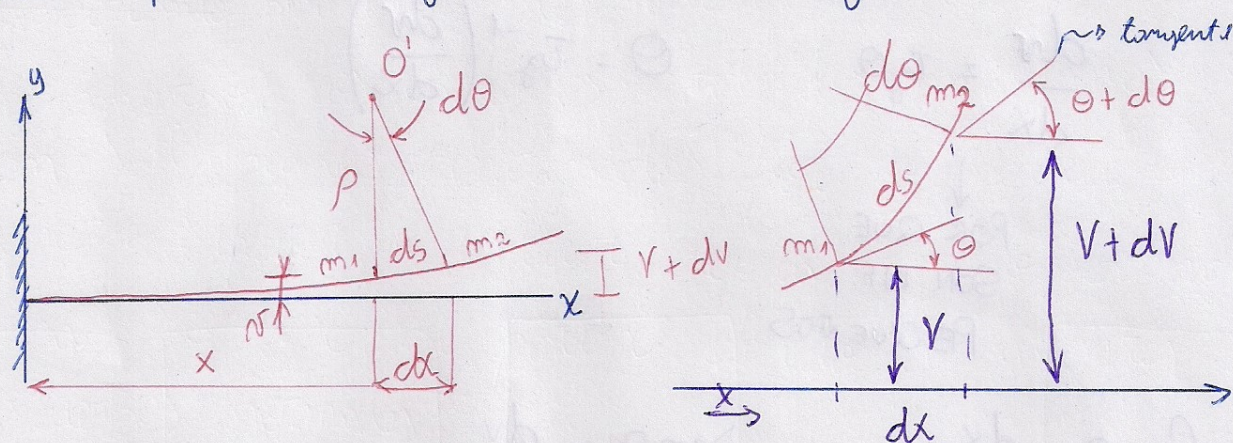 y
O'
dθ
ρ
m1 ds m2
V + dV
v
x
x
dx
tangente
dθ
m2
θ + dθ
ds
m1
θ
V
V + dV
x
dx